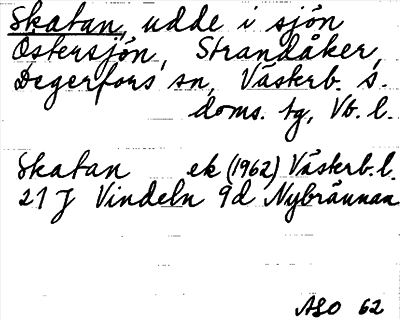 Skatan, udde i sjön
Östersjön, Strandåker,
Degerfors sn, Västerb. s.
doms. tg, Vb. l.
Skatan ek (1962) Västerb. l.
21 J Vindeln 9d Nybrännan
ASO 62